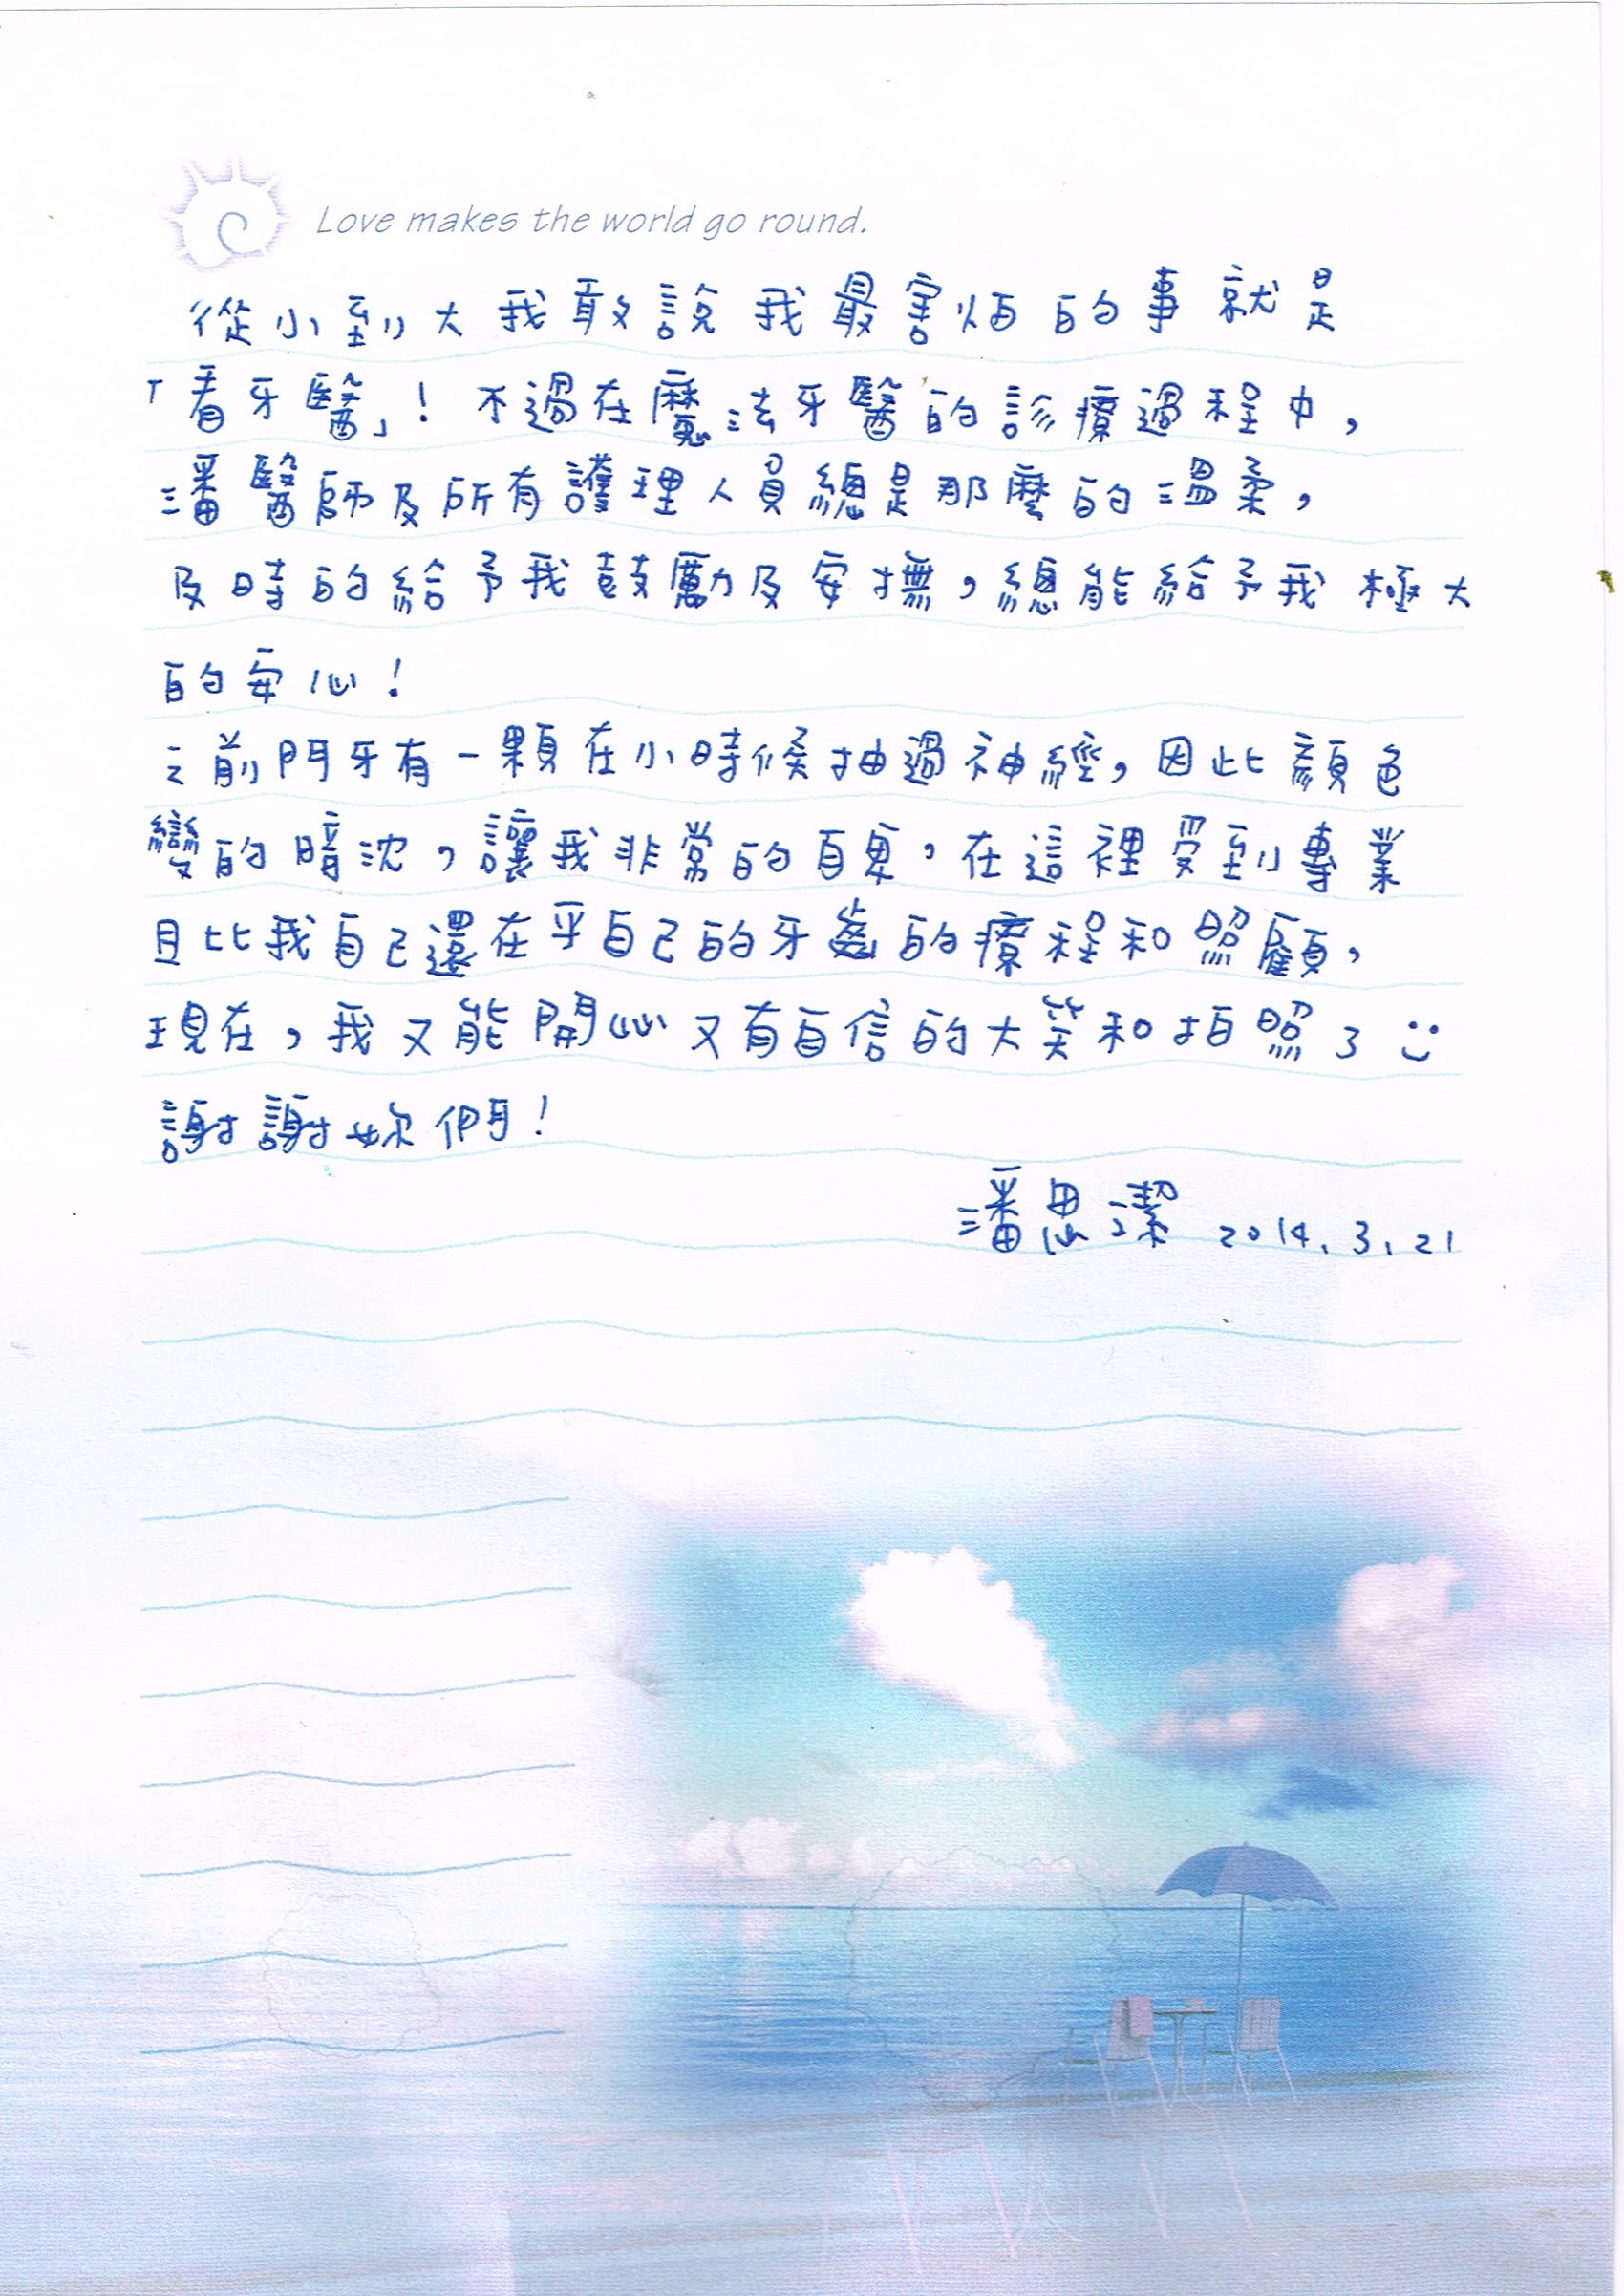 Love makes the world go round.
從小到大我敢說我最害怕的事就是
「看牙醫」! 不過在魔法牙醫的診療過程中,
潘醫師及所有護理人員總是那麼的溫柔,
及時的給予我鼓勵及安撫,總能給予我極大
的安心!
之前門牙有一顆在小時候抽過神經,因此顏色
變的暗沈,讓我非常的自卑,在這裡受到專業
且比我自己還在乎自己的牙齒的療程和照顧,
現在,我又能開心又有自信的大笑和拍照了
謝謝妳們!
潘思潔 2014.3.21